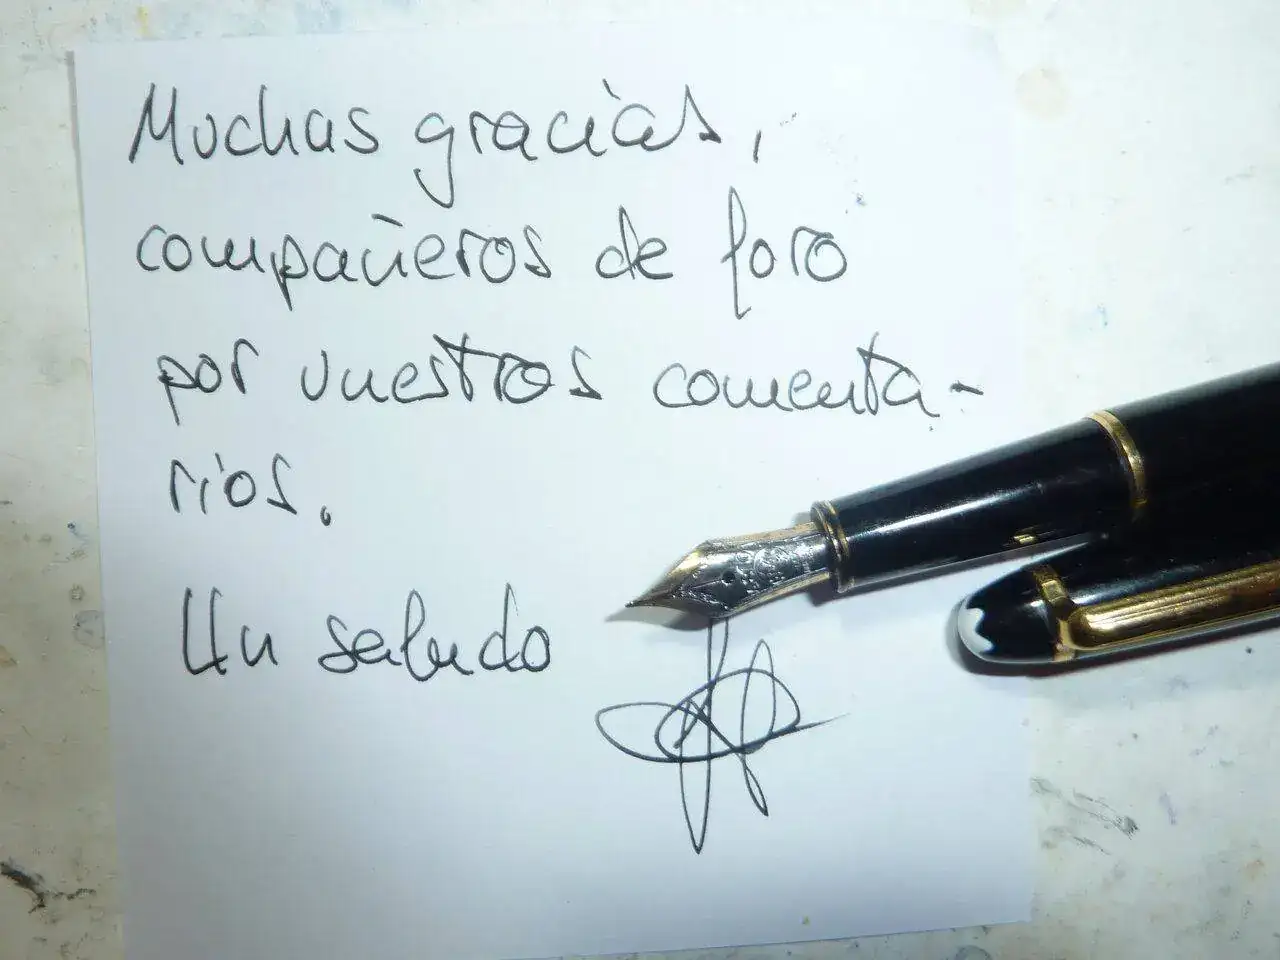 Muchas gracias,
compañeros de foro
por vuestros comenta-
rios.
Un saludo